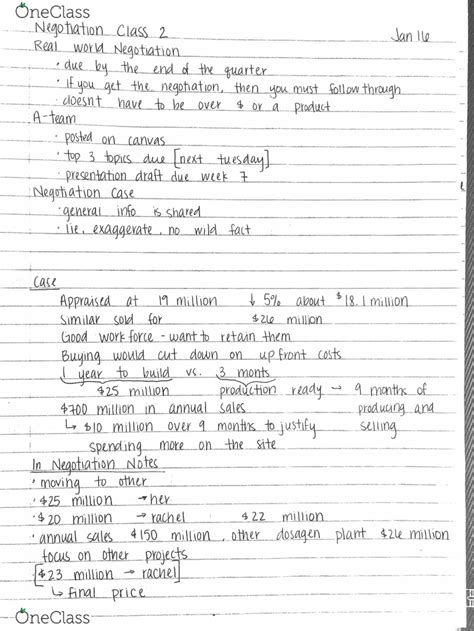 OneClass
Negotiation Class 2 Jan 16
Real world Negotiation
• due by the end of the quarter
• if you get the negotiation, then you must follow through
• doesnt have to be over $ or a product
A-team
• posted on canvas
• top 3 topics due [next tuesday]
• presentation draft due week 7
Negotiation Case
• general info is shared
• lie, exaggerate, no wild fact
Case
Appraised at 19 million ↓ 5% about $18.1 million
Similar sold for $26 million
Good work force - want to retain them
Buying would cut down on up front costs
1 year to build vs. 3 monts
$25 million production ready → 9 months of
$700 million in annual sales producing and
↳ $10 million over 9 months to justify selling
spending more on the site
In Negotiation Notes
• moving to other
• $25 million → her
• $20 million → rachel $22 million
• annual sales $150 million, other dosagen plant $26 million
focus on other projects
[$23 million → rachel]
↳ final price
OneClass